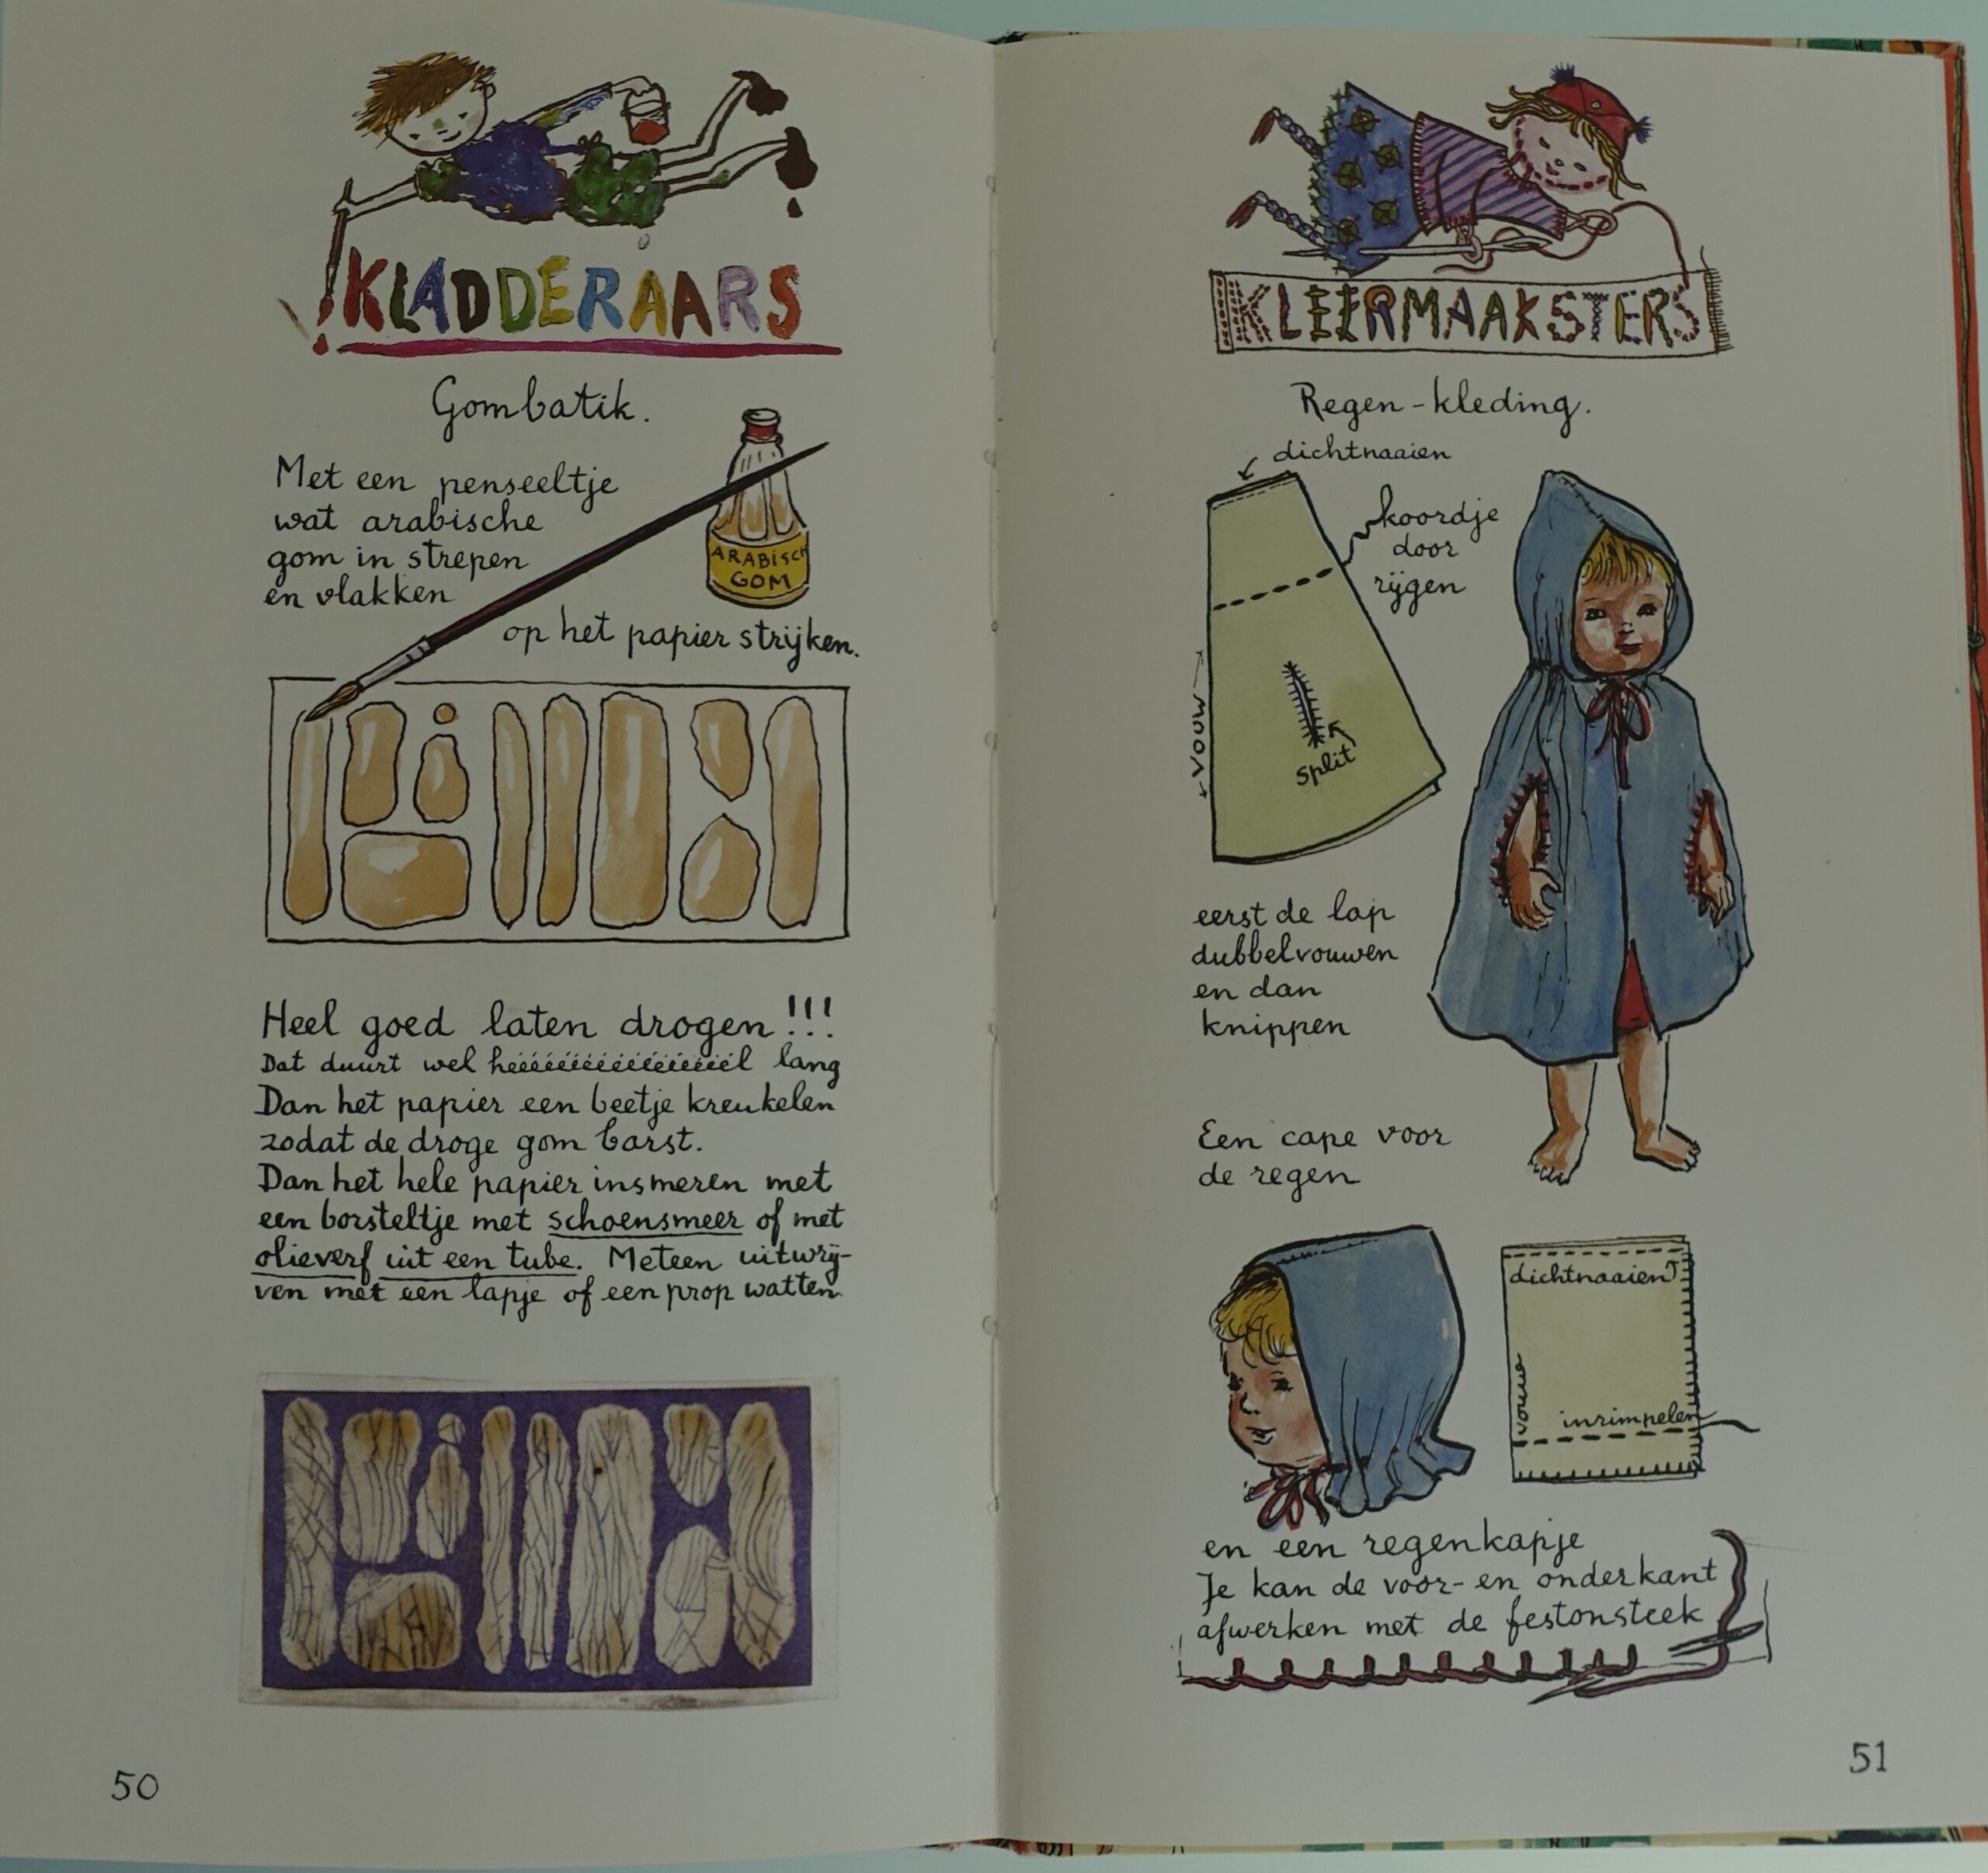 KLADDERAARS
Gombatik.
Met een penseeltje
wat arabische
gom in strepen
en vlakken
op het papier strijken.
ARABISCH
GOM
Heel goed laten drogen!!!
Dat duurt wel heéééééééééééééél lang
Dan het papier een beetje kreukelen
zodat de droge gom barst.
Dan het hele papier insmeren met
een borsteltje met schoensmeer of met
olieverf uit een tube. Meteen uitwrij-
ven met een lapje of een prop watten.
50
KLEERMAAKSTERS
Regen-kleding.
dichtnaaien
koordje
door
rijgen
VOUW
split
eerst de lap
dubbelvouwen
en dan
knippen
Een cape voor
de regen
dichtnaaien
vouw
inrimpelen
en een regenkapje
Je kan de voor- en onderkant
afwerken met de festonsteek
51